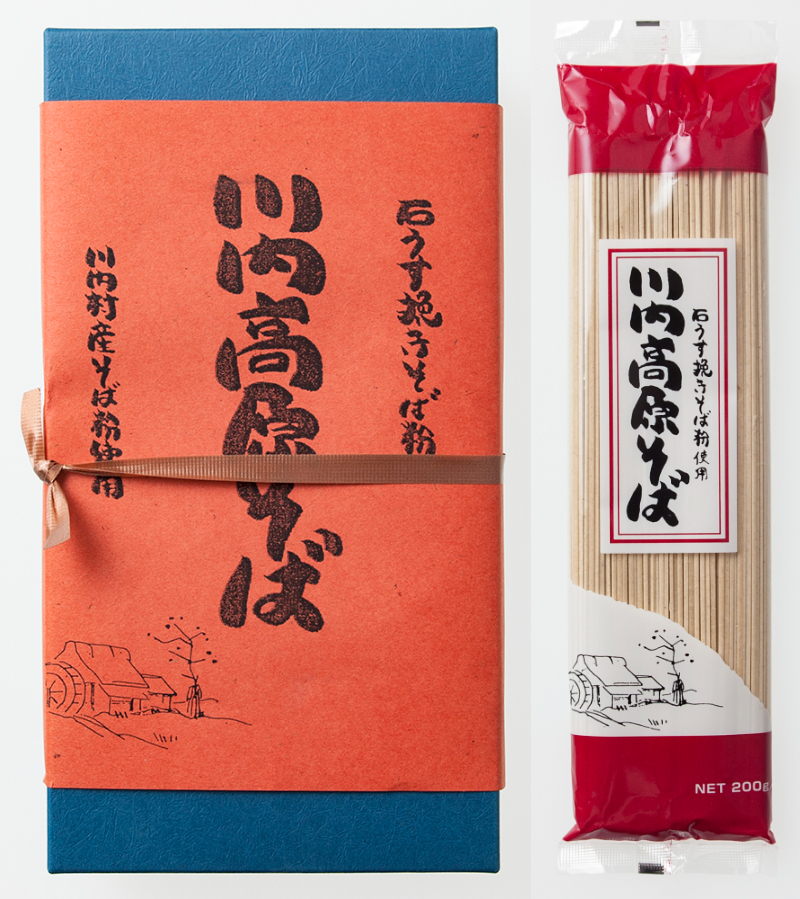 石うす挽きそば粉
川内高原そば
川内村産そば粉使用
石うす挽きそば粉使用
川内高原そば
NET 200g